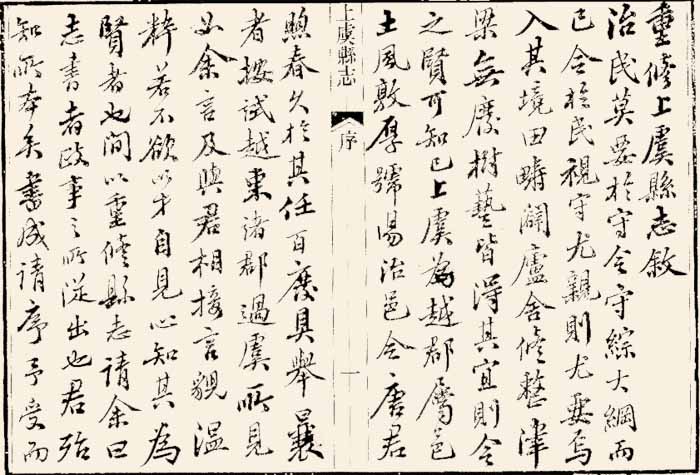 重修上虞縣志敘
治民莫要於守令守綜大綱而
已令於民視守尤親則尤要焉
入其境田疇闢廬舍修整津
梁無廢樹藝皆得其宜則令
之賢可知已上虞為越郡屬邑
土風敦厚號易治邑令唐君
上虞縣志
序
一
煦春久於其任百廢具舉曩
者按試越東諸郡過虞所見
如余言及與君相接言貌溫
粹若不欲以才自見心知其為
賢者也間以重修縣志請余曰
志書者政事之所從出也君殆
知所本矣書成請序予受而